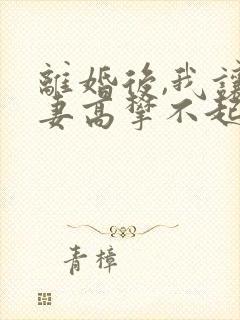 離婚後,我讓
妻高攀不起
青樟